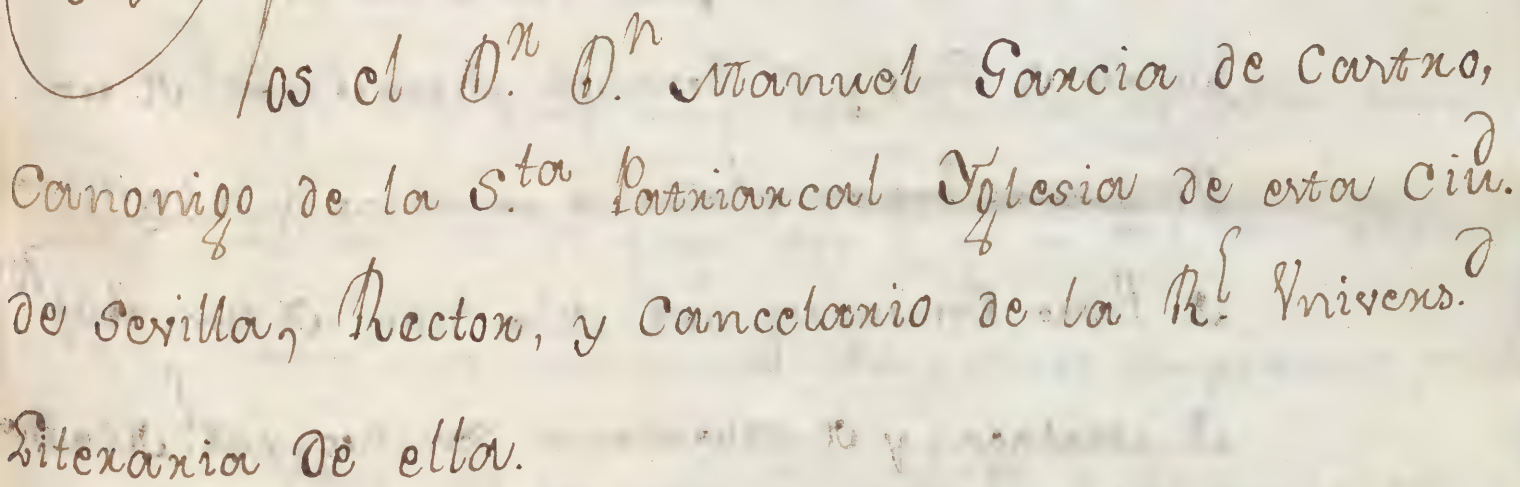 os el D.n D.n Manuel Garcia de Castro,
Canonigo de la S.ta Patriarcal Yglesia de esta Ciu.d
de Sevilla, Rector, y Cancelario de la R.l Vnivers.d
Literária de ella.